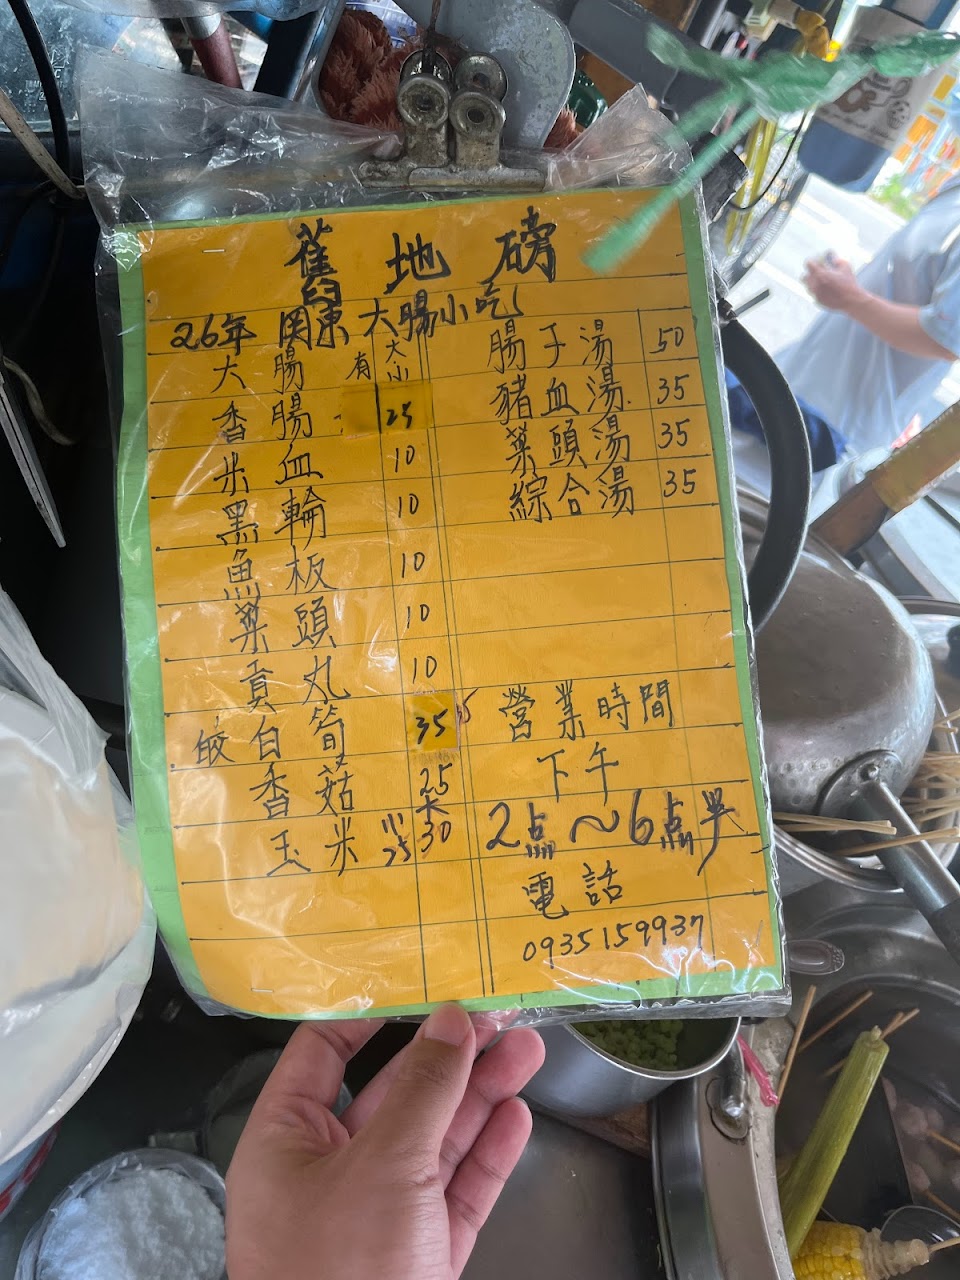 舊地磅
26年 関東大腸小吃
大腸 有大小
香腸 25
米血 10
黑輪 10
魚板 10
藥頭 10
貢丸 10
皎白筍 35
香菇 25
玉米 小25 大30
腸子湯 50
豬血湯 35
藥頭湯 35
綜合湯 35
營業時間
下午
2点～6点半
電話
0935159937